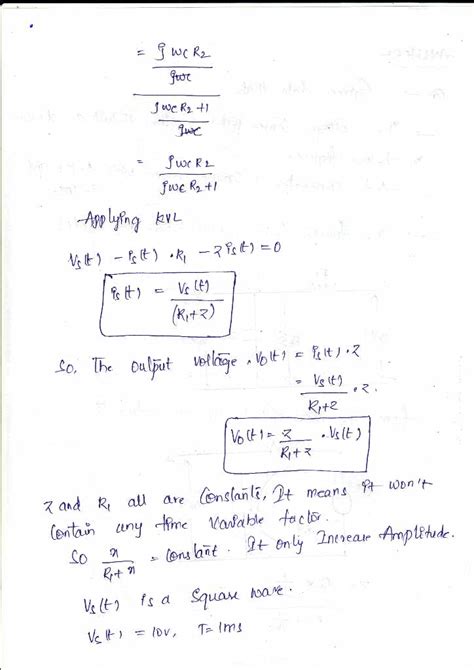 = jωCR₂
jωC
jωCR₂+1
jωC
= jωCR₂
jωCR₂+1
Applying KVL
Vs(t) - is(t) · R₁ - Z is(t) = 0
is(t) = Vs(t)
(R₁+Z)
So, The output voltage, Vo(t) = is(t) · Z
= Vs(t) · Z.
R₁+Z
Vo(t) = Z · Vs(t)
R₁+Z
Z and R₁ all are Constants, It means it won't
Contain any time Variable factor.
So x = Constant. It only Increase Amplitude.
R₁+x
Vs(t) is a Square wave.
Vs(t) = 10V, T=1ms